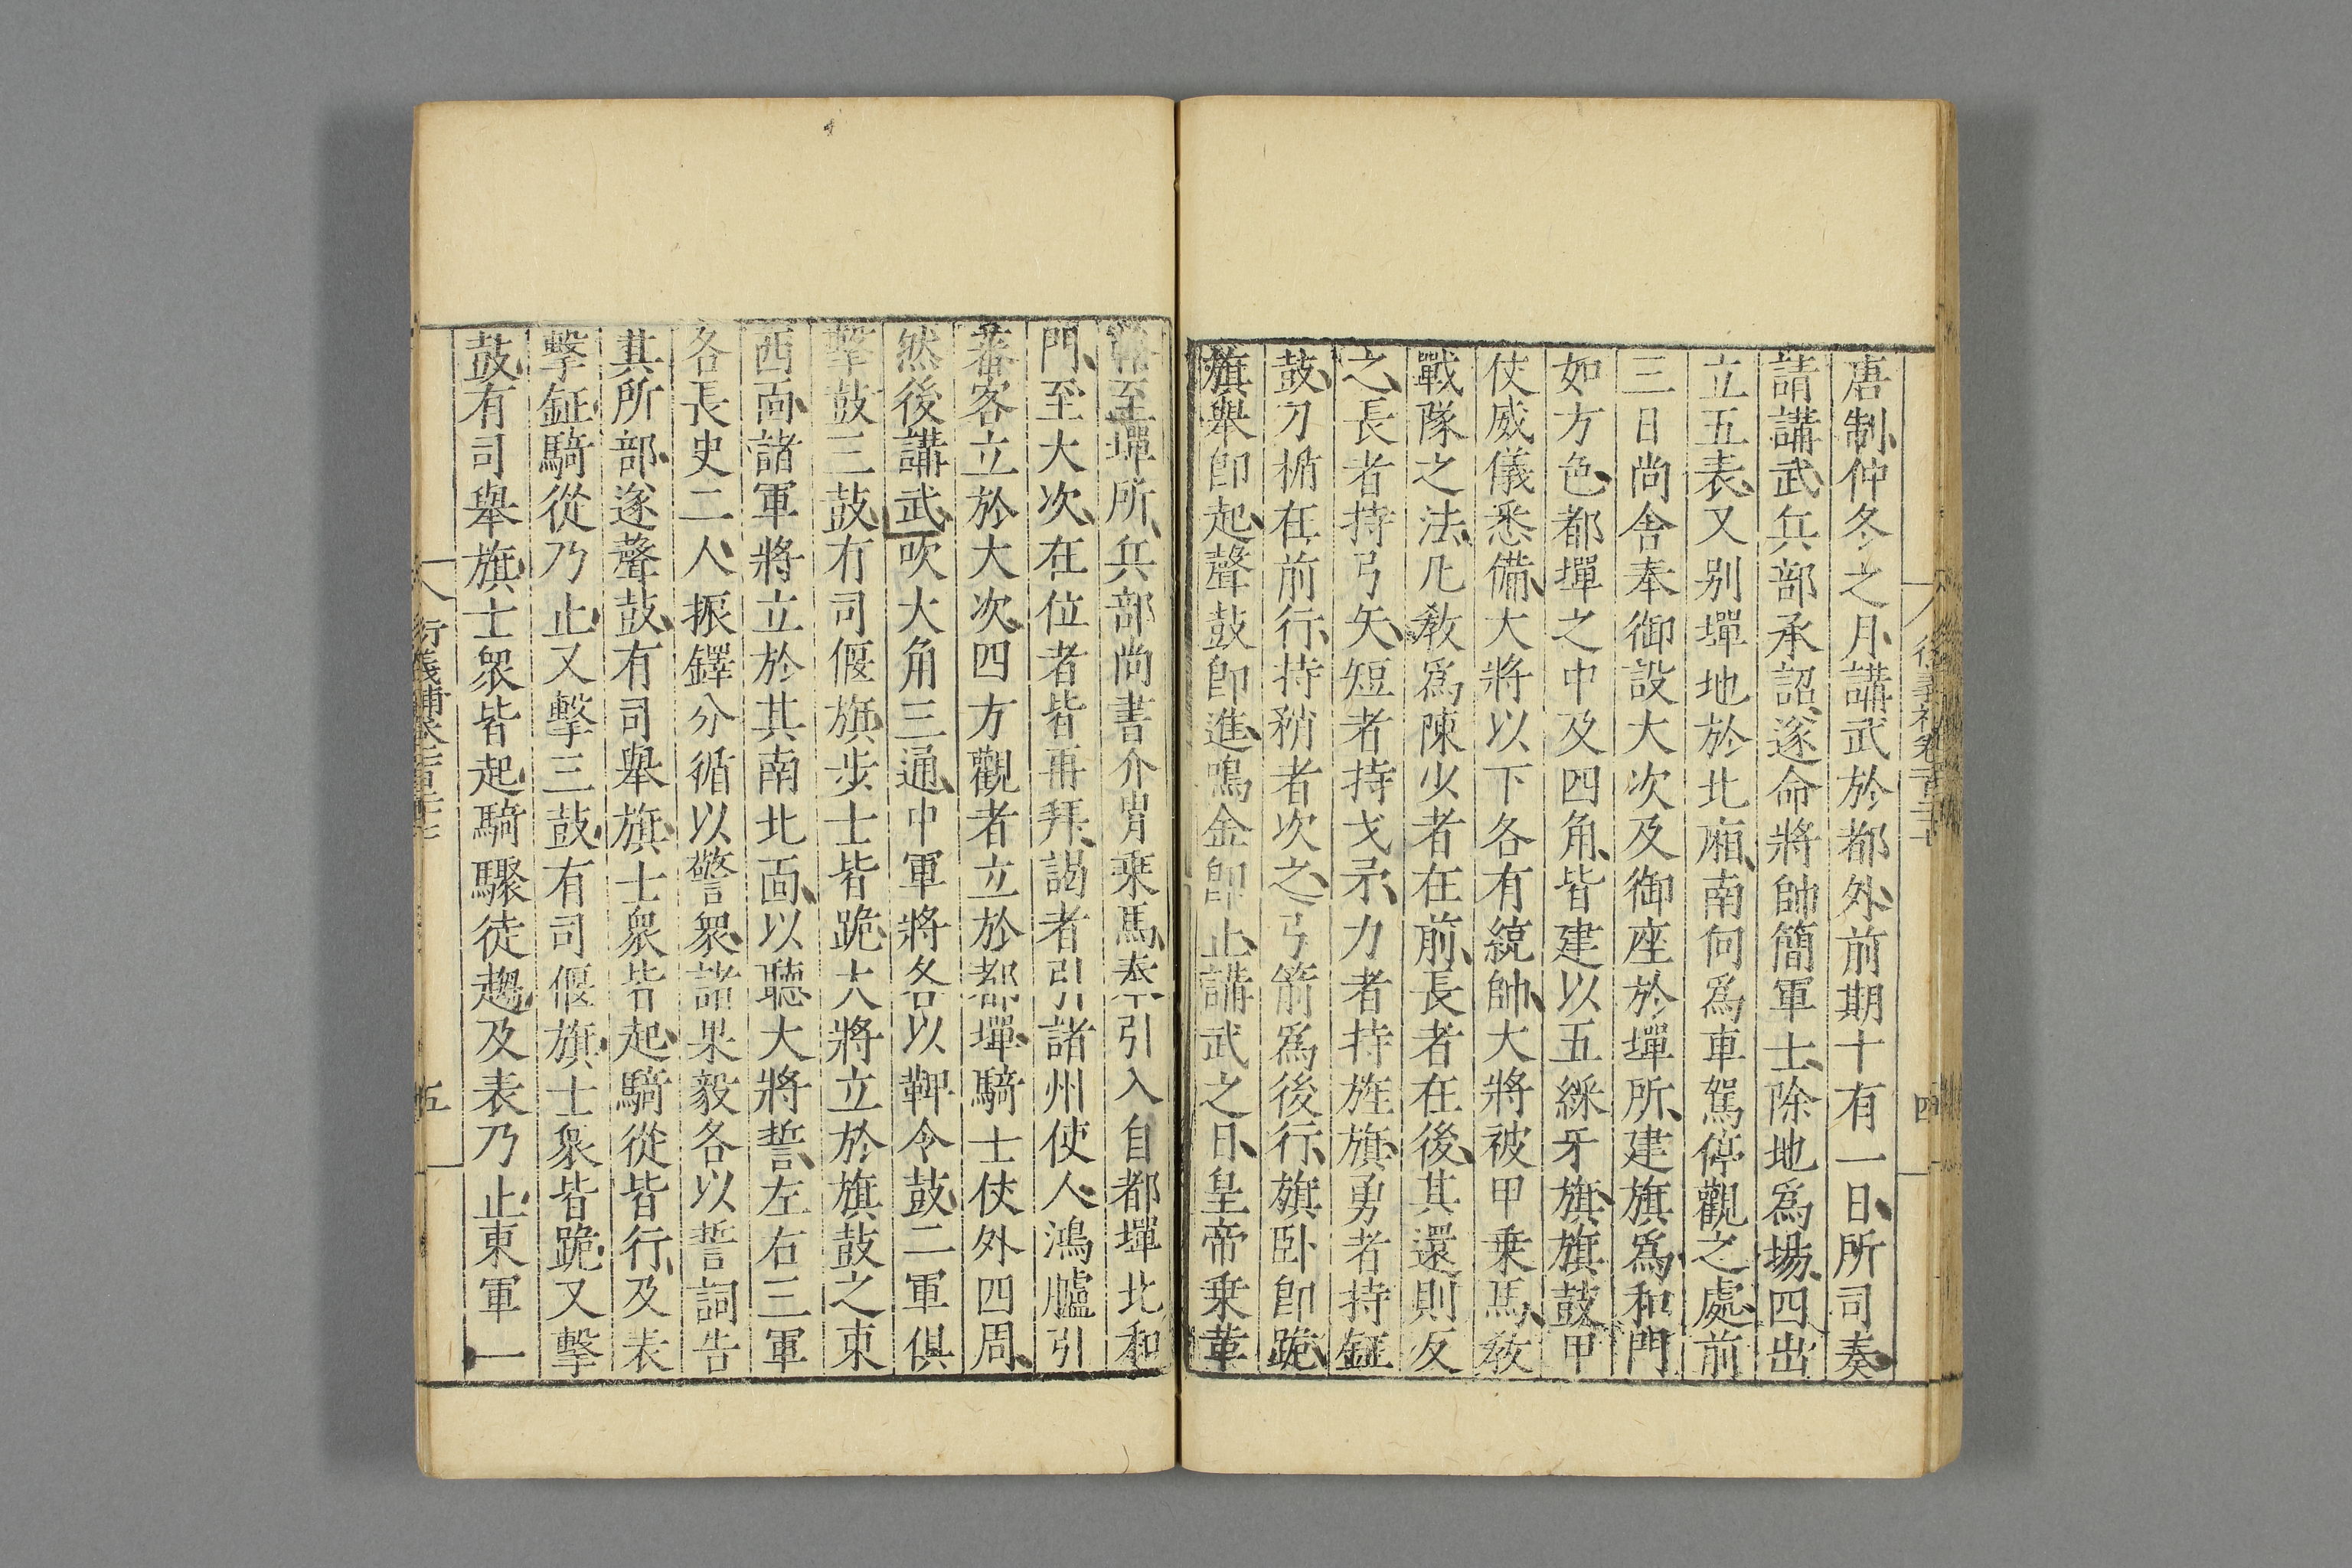 唐制、仲冬之月、講武於都外、前期十有一日、所司奏
請講武、兵部承詔、遂命將帥簡軍士、除地爲場、四出
立五表、又别墠地於北廂、南向爲車駕停觀之處、前
三日尚舍奉御設大次及御座於墠所、建旗爲和門
如方色、都墠之中及四角、皆建以五綵牙旗、旗鼓甲
仗威儀悉備、大將以下各有統帥、大將被甲乗馬、敎
戰隊之法、凡敎爲陳少者在前、長者在後、其還則反
之、長者持弓矢、短者持戈矛、力者持旌旗、勇者持鉦
鼓、刀楯在前行、持矟者次之、弓箭爲後行、旗卧卽跪、
旗舉卽起、聲鼓卽進、鳴金卽止、講武之日、皇帝乗革
輅至墠所、兵部尚書介胄乗馬、奉引入自都墠北和
門、至大次、在位者皆再拜、謁者引諸州使人、鴻臚引
蕃客立於大次、四方觀者立於都墠、騎士仗外四周、
然後講武、吹大角三通、中軍將各以鞞令鼓、二軍俱
擊鼓三鼓、有司偃旗、步士皆跪、大將立於旗鼓之東
西面、諸軍將立於其南北面、以聽大將誓、左右三軍
各長史二人、振鐸分循以警衆、諸果毅各以誓詞告
其所部、遂聲鼓、有司舉旗、士衆皆起、騎從皆行、及表
擊鉦、騎從乃止、又擊三鼓、有司偃旗、士衆皆跪、又擊
鼓、有司舉旗、士衆皆起、騎驟徒趨、及表乃止、東軍一
行義補卷一百三十七
五
四